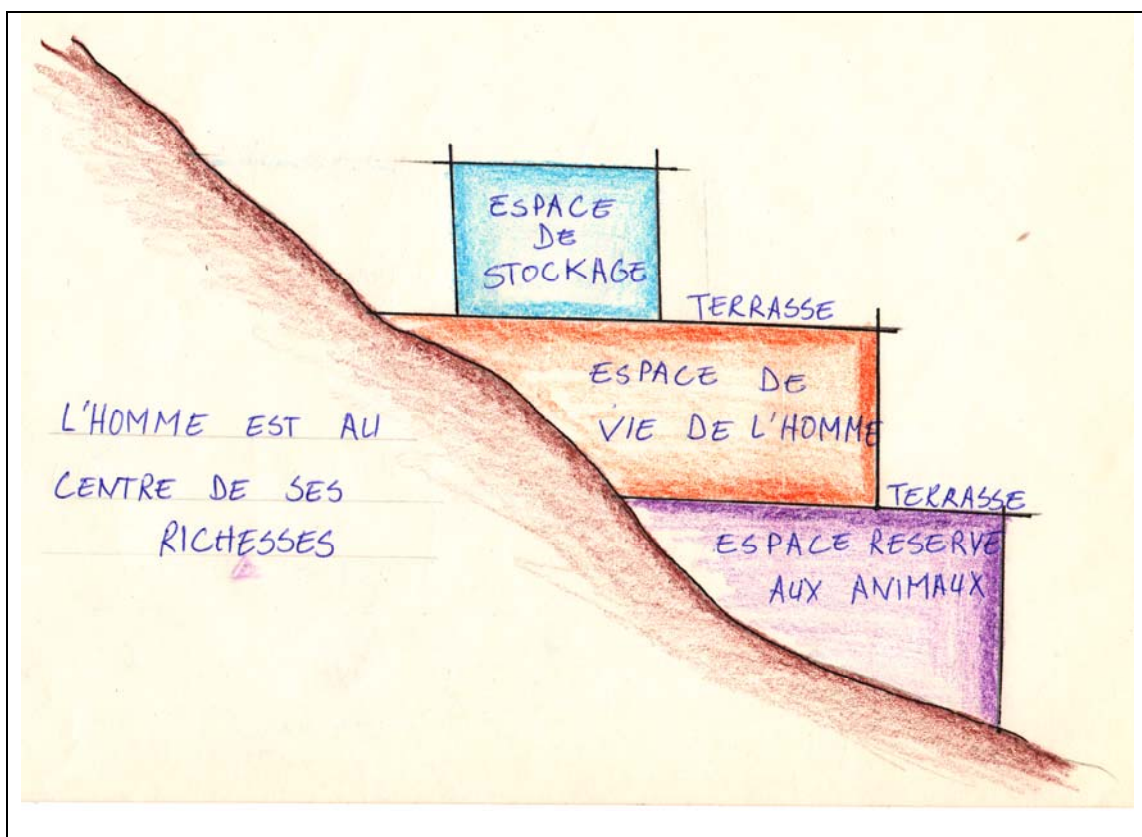 ESPACE
DE
STOCKAGE
TERRASSE
ESPACE DE
VIE DE L'HOMME
TERRASSE
ESPACE RESERVE
AUX ANIMAUX
L'HOMME EST AU
CENTRE DE SES
RICHESSES